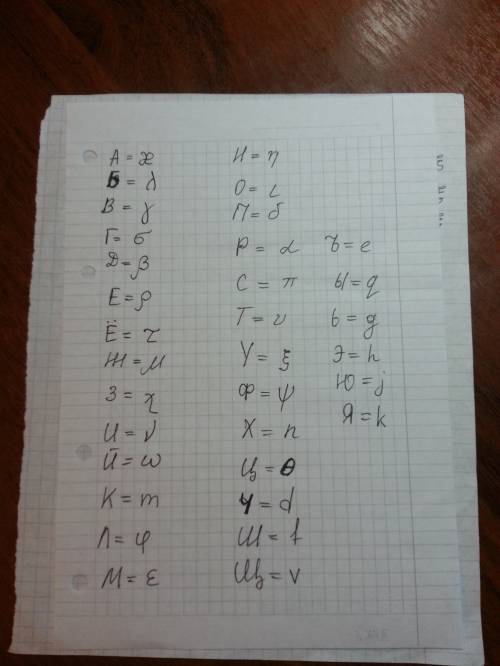 А = æ
Б = λ
В = γ
Г = σ
Д = β
Е = ρ
Ё = τ
Ж = μ
З = χ
И = ν
Й = ω
К = m
Л = φ
М = ε
Н = η
О = ι
П = б
Р = α
С = π
Т = υ
У = ξ
Ф = ψ
Х = n
Ц = θ
Ч = d
Ш = f
Щ = v
Ъ = e
Ы = q
Ь = g
Э = h
Ю = j
Я = k